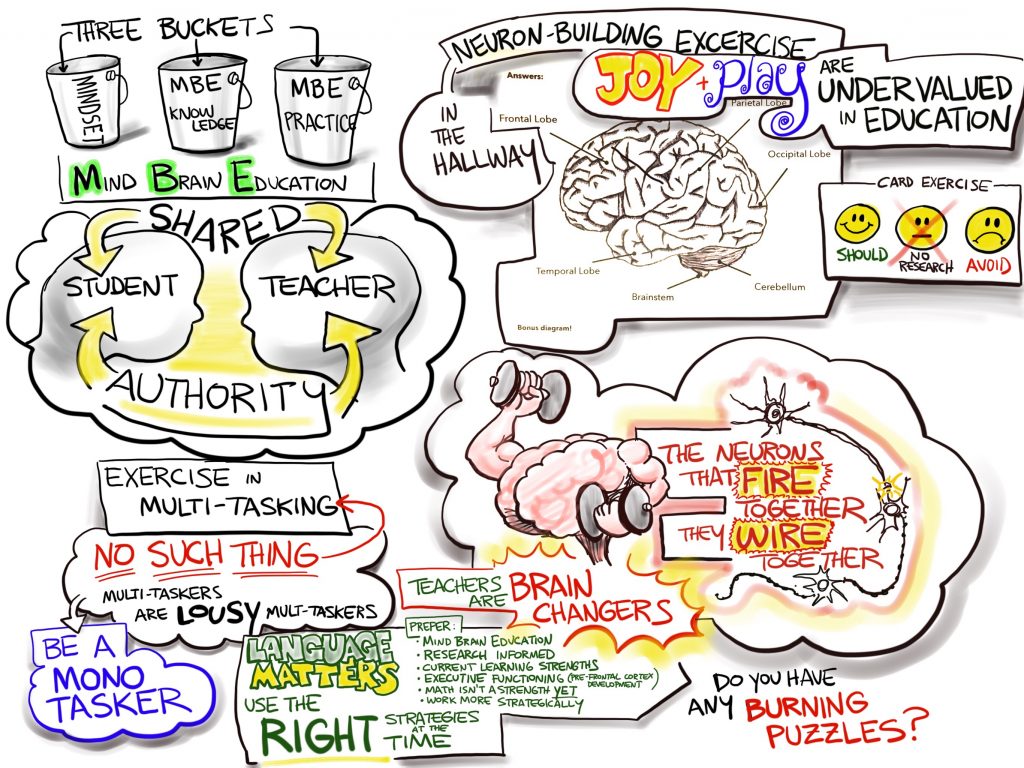 THREE BUCKETS
MINDSET
MBE
KNOW
LEDGE
MBE
PRACTICE
MIND BRAIN EDUCATION
SHARED
STUDENT
TEACHER
AUTHORITY
EXERCISE IN
MULTI-TASKING
NO SUCH THING
MULTI-TASKERS
ARE LOUSY MULT-TASKERS
BE A
MONO
TASKER
NEURON-BUILDING EXCERCISE
IN
THE
HALLWAY
Answers:
JOY + Play
ARE
UNDERVALUED
IN EDUCATION
Frontal Lobe
Parietal Lobe
Occipital Lobe
Temporal Lobe
Brainstem
Cerebellum
Bonus diagram!
CARD EXERCISE
SHOULD
NO
RESEARCH
AVOID
THE NEURONS
THAT FIRE
TOGETHER
THEY WIRE
TOGETHER
TEACHERS
ARE BRAIN
CHANGERS
LANGUAGE
MATTERS
USE THE
RIGHT STRATEGIES
AT THE
TIME
PREFER:
• MIND BRAIN EDUCATION
• RESEARCH INFORMED
• CURRENT LEARNING STRENGTHS
• EXECUTIVE FUNCTIONING (PRE-FRONTAL CORTEX
DEVELOPMENT)
• MATH ISN'T A STRENGTH YET
• WORK MORE STRATEGICALLY
DO YOU HAVE
ANY BURNING
PUZZLES?